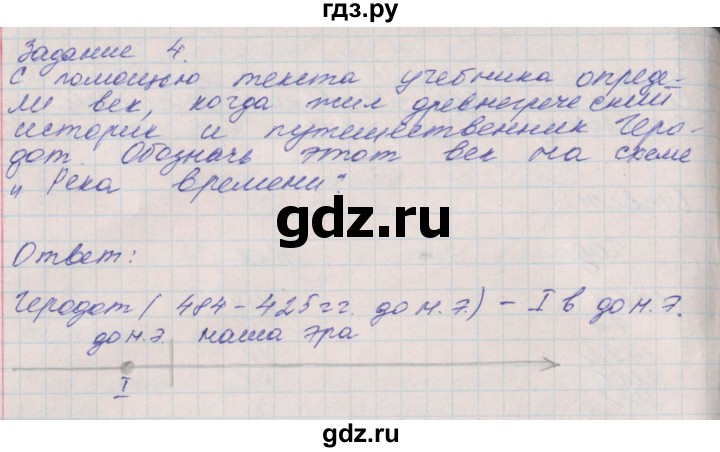 гдз.ру
Задание 4.
С помощью текста учебника опреде-
ли век, когда жил древнегреческий
историк и путешественник Геро-
дот. Обозначь этот век на схеме
„Река времени".
gdz.ru
Ответ:
Геродот ( 484-425 гг. до н.э.) - I в до н.э.
до н.э. наша эра
I
gdz.ru